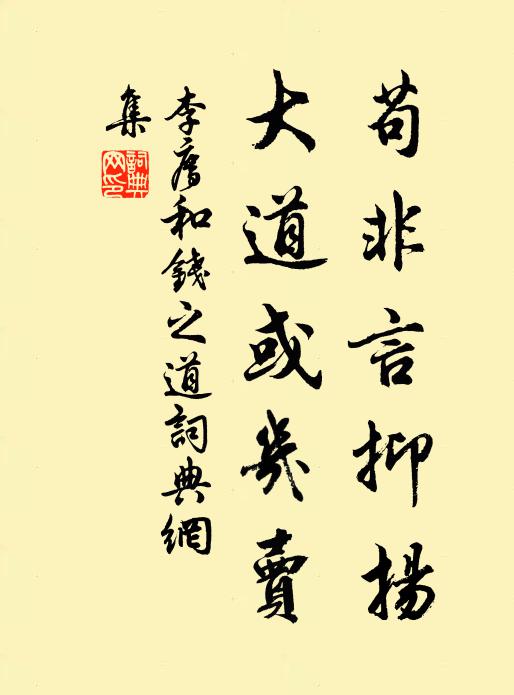 苟非言抑揚
大道或幾賣
李廌和錢之道詞典網
集
詞典網印